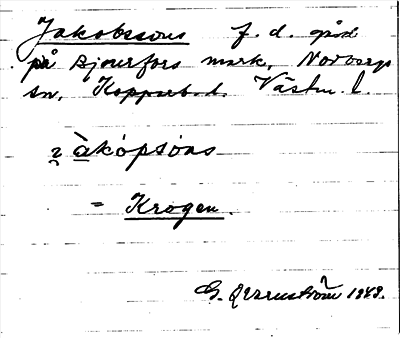 Jakobssons f. d. gård
på Bjurfors mark, Norbergs
sn, Kopparb. l. Västm. l.
àkópsòns
= Krogen.
G. Qvarnström 1948.